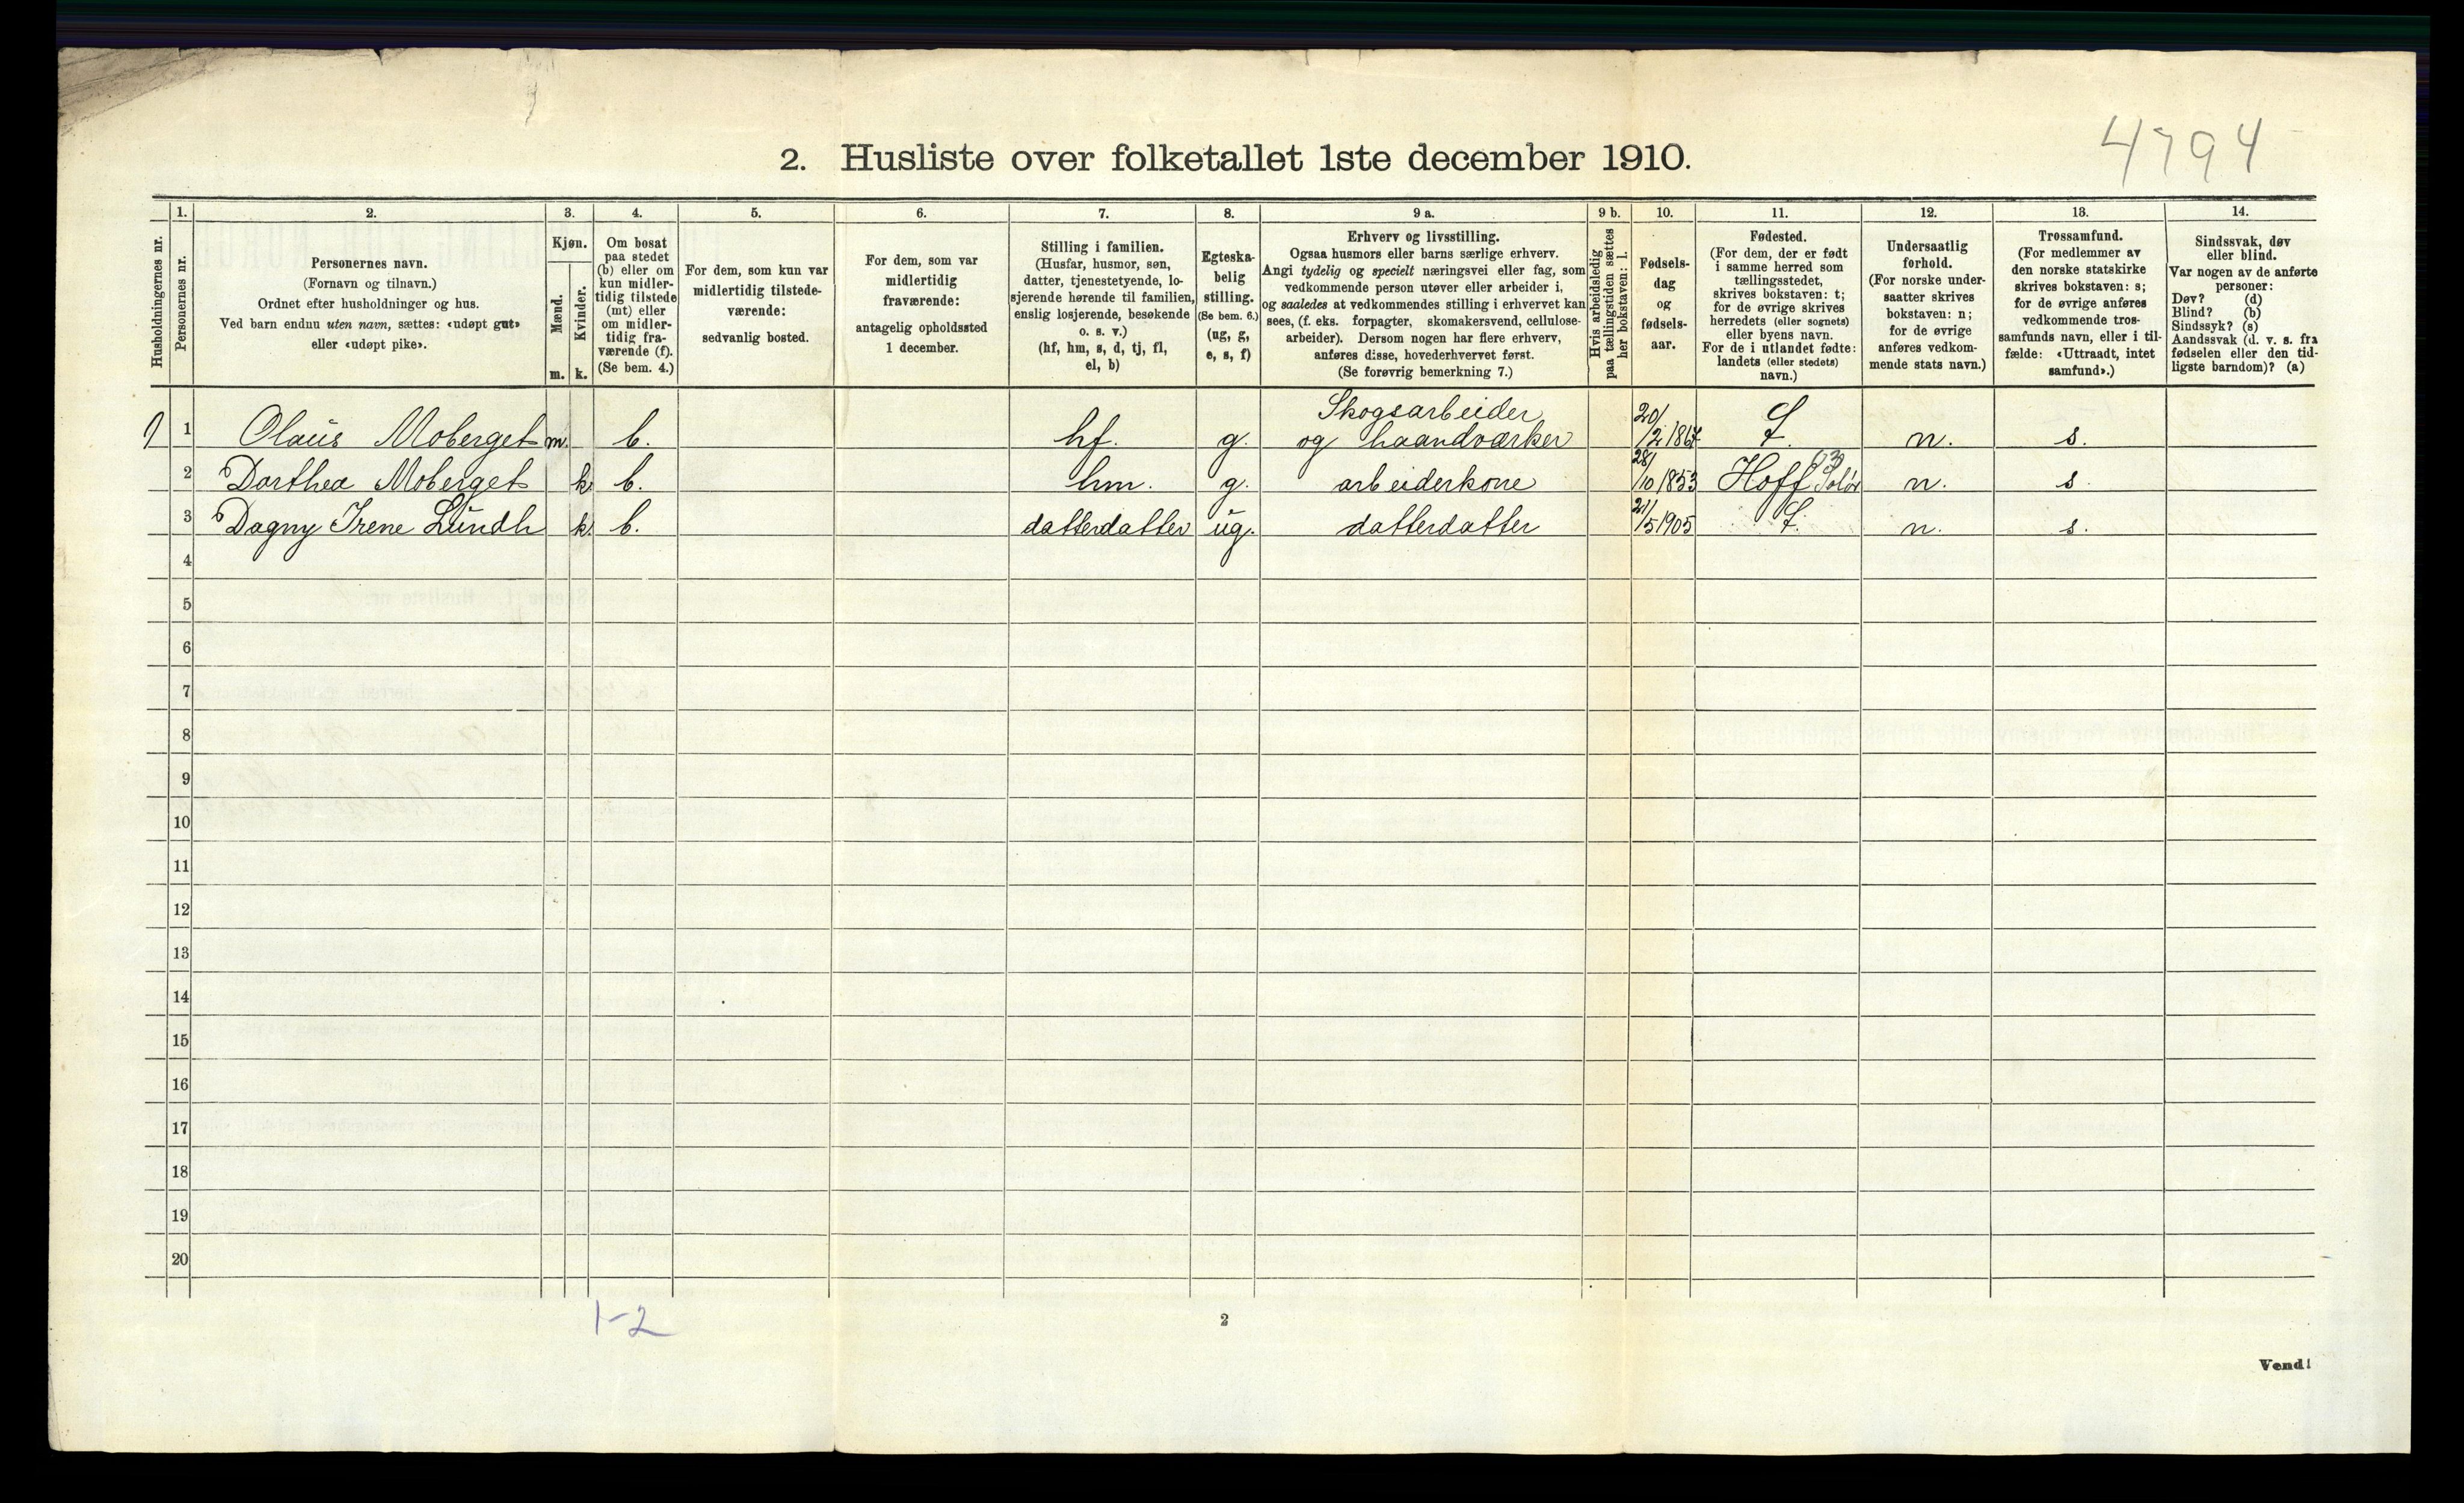 4794
2. Husliste over folketallet 1ste december 1910.
Husholdningernes nr.
1.
Personernes nr.
2.
Personernes navn.
(Fornavn og tilnavn.)
Ordnet efter husholdninger og hus.
Ved barn endnu uten navn, sættes: «udøpt gut»
eller «udøpt pike».
3.
Kjøn.
Mænd.
Kvinder.
m.
k.
4.
Om bosat
paa stedet
(b) eller om
kun midler-
tidig tilstede
(mt) eller
om midler-
tidig fra-
værende (f).
(Se bem. 4.)
5.
For dem, som kun var
midlertidig tilstede-
værende:
sedvanlig bosted.
6.
For dem, som var
midlertidig
fraværende:
antagelig opholdssted
1 december.
7.
Stilling i familien.
(Husfar, husmor, søn,
datter, tjenestetyende, lo-
sjerende hørende til familien,
enslig losjerende, besøkende
o. s. v.)
(hf, hm, s, d, tj, fl,
el, b)
8.
Egteska-
belig
stilling.
(Se bem. 6.)
(ug, g,
e, s, f)
9 a.
Erhverv og livsstilling.
Ogsaa husmors eller barns særlige erhverv.
Angi tydelig og specielt næringsvei eller fag, som
vedkommende person utøver eller arbeider i,
og saaledes at vedkommendes stilling i erhvervet kan
sees, (f. eks. forpagter, skomakersvend, cellulose-
arbeider). Dersom nogen har flere erhverv,
anføres disse, hovederhvervet først.
(Se forøvrig bemerkning 7.)
9 b.
Hvis arbeidsledig
paa tællingstiden sættes
her bokstaven: l.
10.
Fødsels-
dag
og
fødsels-
aar.
11.
Fødested.
(For dem, der er født
i samme herred som
tællingsstedet,
skrives bokstaven: t;
for de øvrige skrives
herredets (eller sognets)
eller byens navn.
For de i utlandet fødte:
landets (eller stedets)
navn.)
12.
Undersaatlig
forhold.
(For norske under-
saatter skrives
bokstaven: n;
for de øvrige
anføres vedkom-
mende stats navn.)
13.
Trossamfund.
(For medlemmer av
den norske statskirke
skrives bokstaven: s;
for de øvrige anføres
vedkommende tros-
samfunds navn, eller i til-
fælde: «Uttraadt, intet
samfund».)
14.
Sindssvak, døv
eller blind.
Var nogen av de anførte
personer:
Døv? (d)
Blind? (b)
Sindssyk? (s)
Aandssvak (d. v. s. fra
fødselen eller den tid-
ligste barndom)? (a)
1 1 Olaüs Moberget m. b. hf. g. Skogsarbeider
og haandværker 20/2 1867 t. n. s.
2 Dorthea Moberget k. b. hm. g. arbeiderkone 28/10 1853 Hoff Solør n. s.
3 Dagny Irene Lündh k. b. datterdatter üg. datterdatter 21/5 1905 t. n. s.
4
5
6
7
8
9
10
11
12
13
14
15
16
17
18
19
20
1-2
2
Vend!